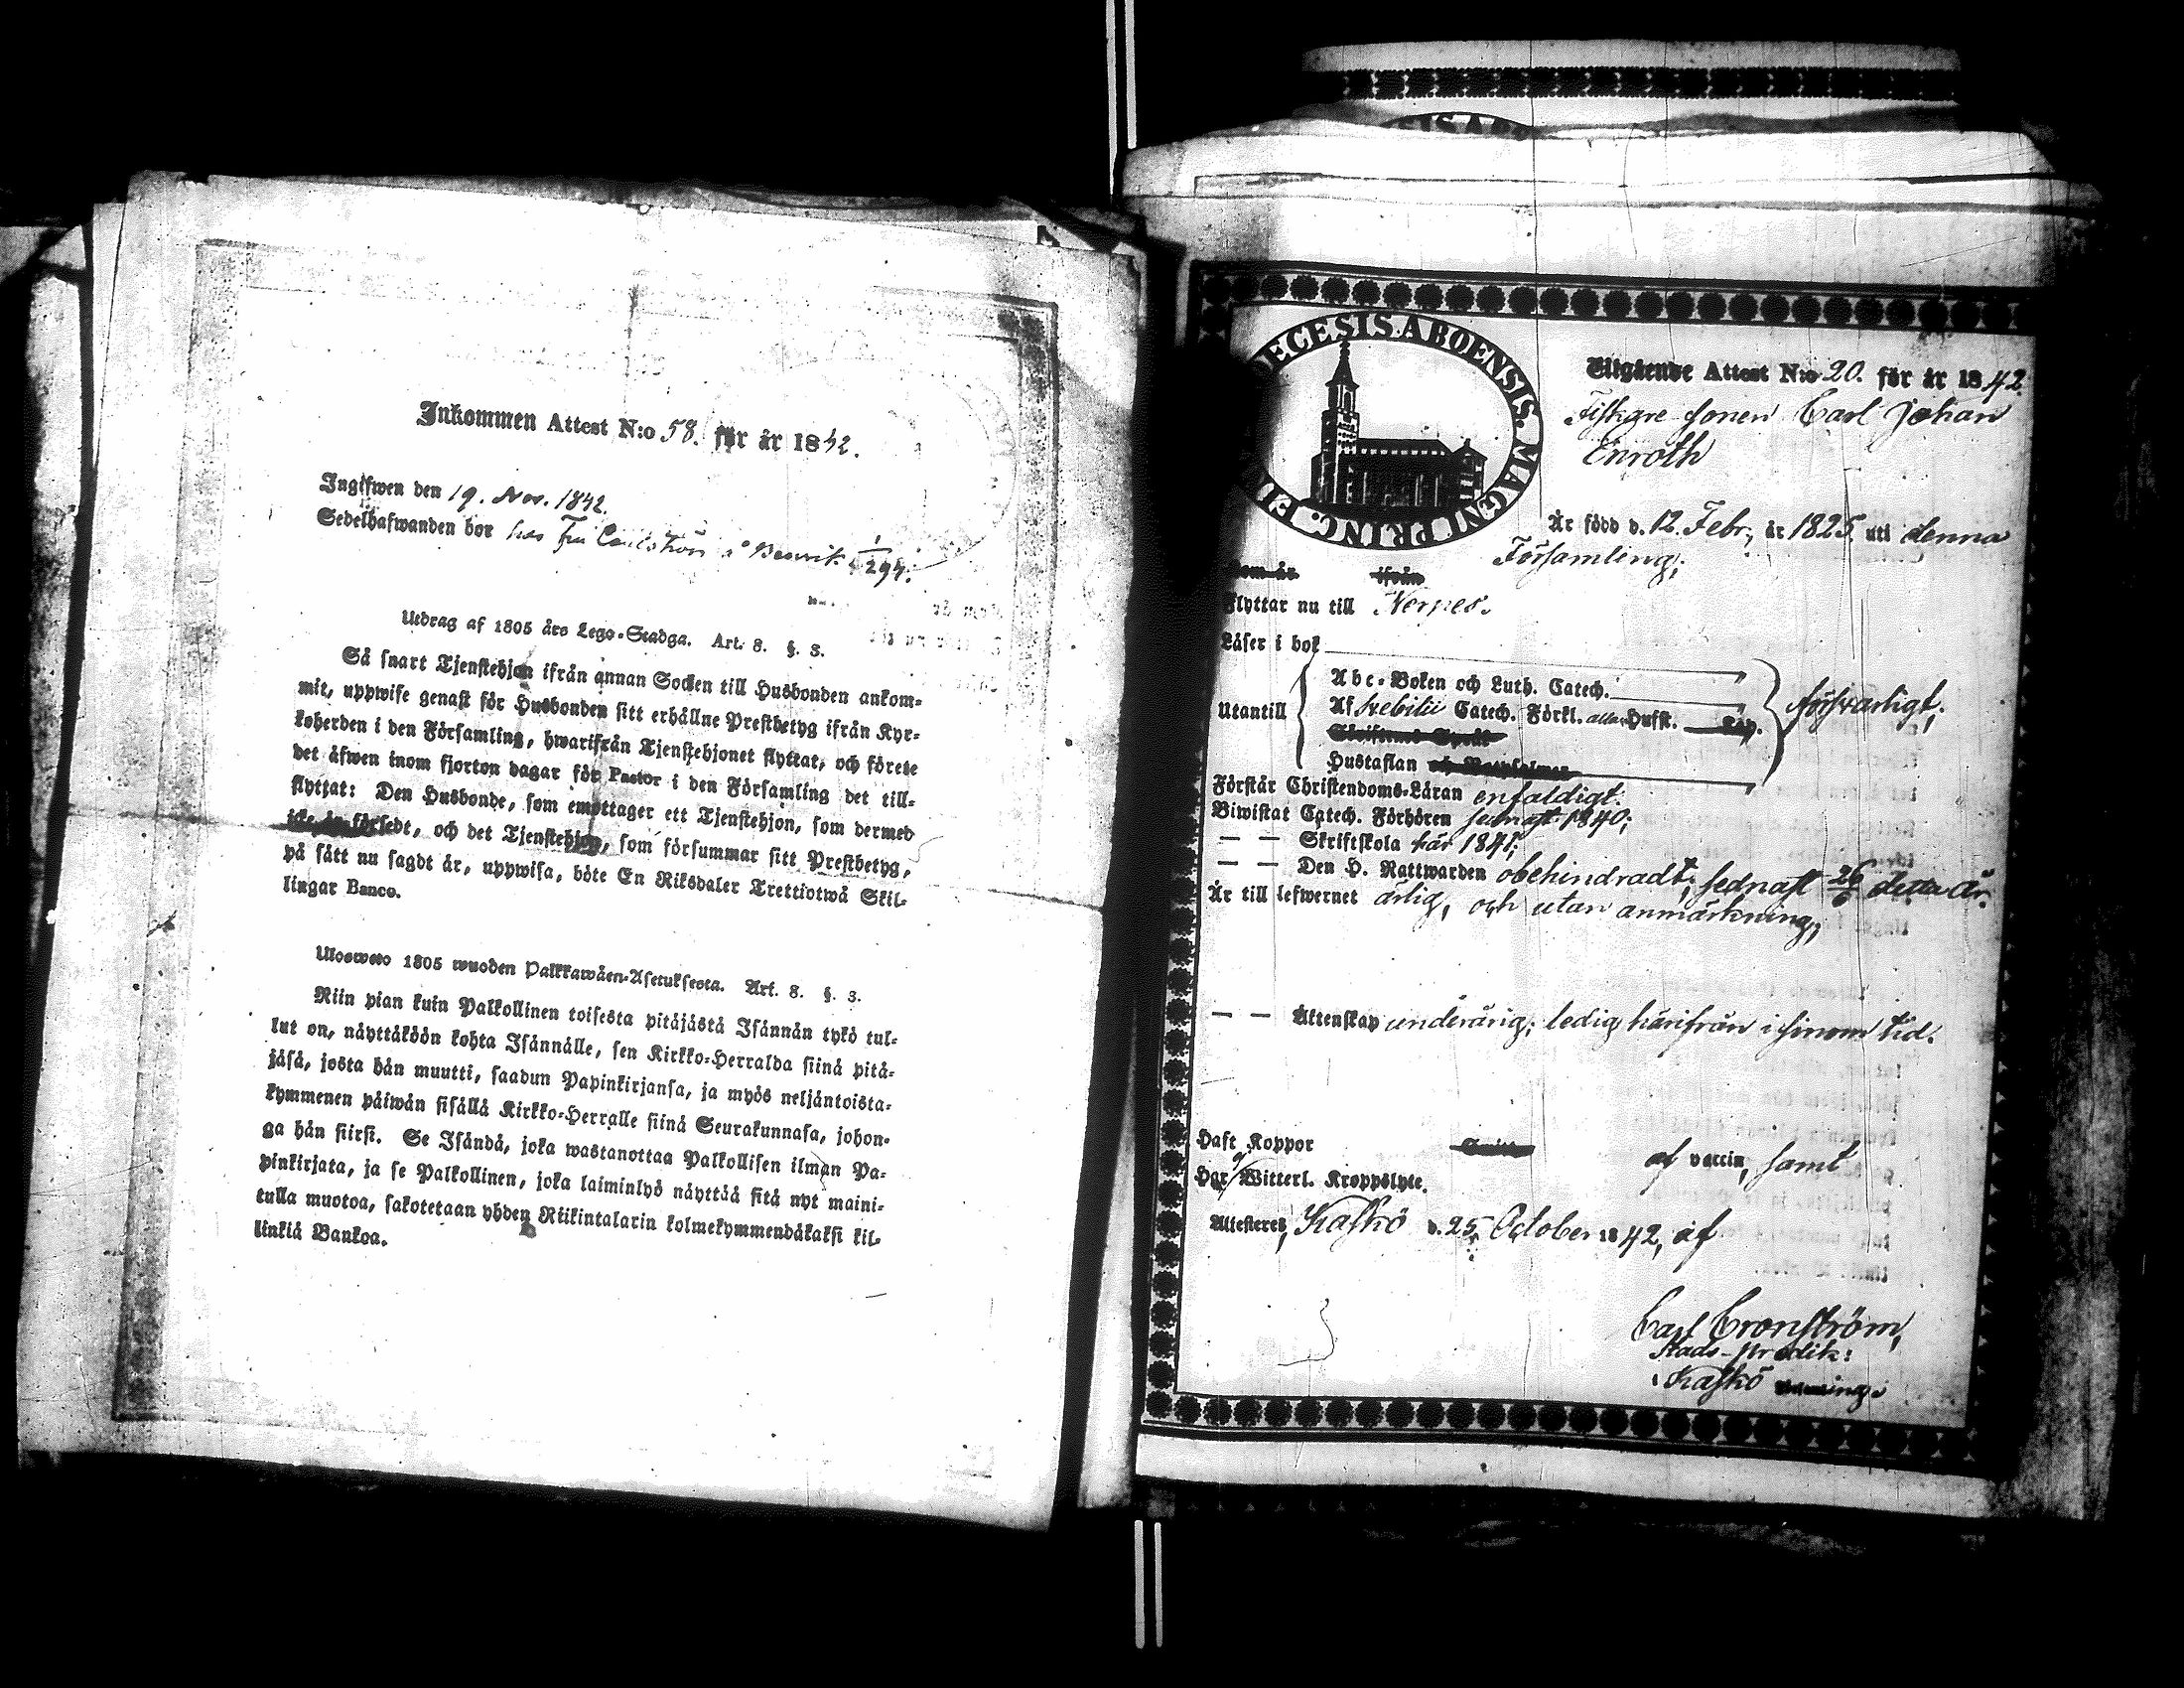 Inkommen Attest N:o 58. för år 1842.
Ingifwen den 19. Nov. 1842.
Sedelhafwanden bor hos Fru Carlström å Benvik 1/294.
Utdrag af 1805 års Lego-Stadga. Art. 8. §. 3.
Så snart Tjenstehjon ifrån annan Socken till Husbonden ankom-
mit, uppwise genast för Husbonden sitt erhållne Prestbetyg ifrån Kyr-
koherden i den Församling, hwarifrån Tjenstehjonet flyttat, och förete
det äfwen inom fjorton dagar för Pastor i den Församling det till-
flyttat: Den Husbonde, som emottager ett Tjenstehjon, som dermed
icke är försedt, och det Tjenstehjon, som försummar sitt Prestbetyg,
på sätt nu sagdt är, uppwisa, böte En Riksdaler Trettiotwå Skil-
lingar Banco.
Ulosweto 1805 wuoden Palkkawäen-Asetuksesta. Art. 8. §. 3.
Niin pian kuin Palkollinen toisesta pitäjästä Isännän tykö tul-
lut on, näyttäköön kohta Isännälle, sen Kirkko-Herralda siinä pitä-
jäsä, josta hän muutti, saadun Papinkirjansa, ja myös neljäntoista-
kymmenen päiwän sisällä Kirkko-Herralle siinä Seurakunnasa, johon-
ga hän siirsi. Se Isändä, joka wastanottaa Palkollisen ilman Pa-
pinkirjata, ja se Palkollinen, joka laiminlyö näyttää sitä nyt maini-
tulla muotoa, sakotetaan yhden Riikintalarin kolmekymmendäkaksi kil-
linkiä Bankoa.
DIŒCESIS ABOENSIS. MAGNI PRINC. FIN
Utgående Attest N:o 20. för år 1842.
Fiskare sonen Carl Johan
Enroth
Är född d. 12 Febr., år 1825. uti denna
Församling;
som är ifrån
Flyttar nu till Nerpes.
Läser i bok
Abc-Boken och Luth. Catech.
Utantill Af Svebilii Catech. Förkl. alla Hufst. Kap. försvarligt;
Skriftenes Språk
Hustaflan och Botpsalmer
Förstår Christendoms-Läran enfaldigt.
Biwistat Catech. Förhören sednast 1840;
— — Skriftskola här 1841;
— — Den H. Nattwarden obehindradt, sednast 26/6 detta år.
Är till lefwernet ärlig, och utan anmärkning;
— — Äktenskap underårig; ledig härifrån i sinom tid.
Haft Koppor af vaccin, samt
Har Witterl. Kroppslyte.
Attesteres, Kaskö d. 25 October 1842, af
Carl Cronström,
Stads-predik:
i Kaskö